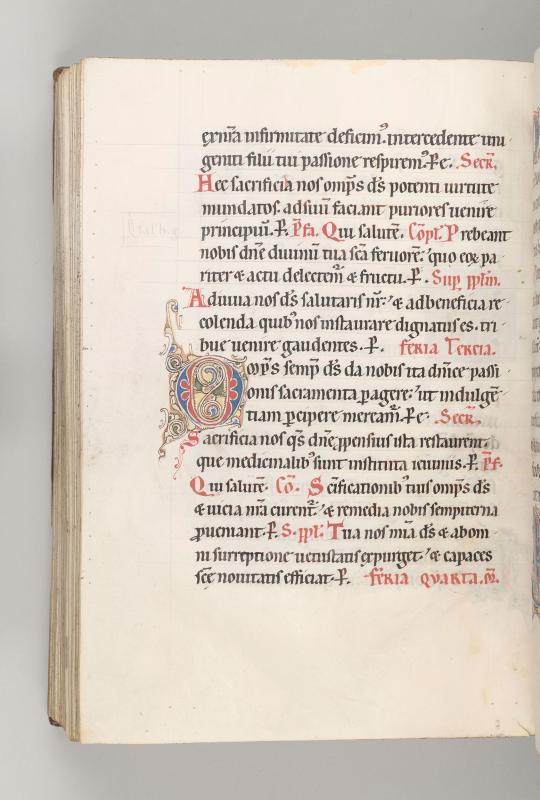 ex nr̄a infirmitate deficim᷒. intercedente uni
geniti filii tui passione respirem᷒. P̶ e. Secr̄.
Hec sacrificia nos omp̄s d̄s potenti uirtute
mundatos. ad suū faciant puriores uenire
principiū. P̶. P̄fa. Qui salutē. Cōpl̄. Prebeant
nobis dn̄e diuinū tua sc̄a feruorē. quo eoꝝ pa
riter & actu delectem᷒ & fructu. P̶. Sup̄ pplm̄.
Adiuua nos d̄s salutaris nr̄. & ad beneficia re
colenda quib᷒ nos instaurare dignatus es. tri
bue uenire gaudentes. P̶. feria Tercia.
Omp̄s semp̄ d̄s da nobis ita dn̄ice passi
onis sacramenta ꝑagere. ut indulgē
tiam ꝑcipere meream᷒. P̶ e. Secr̄.
Sacrificia nos qs̄ dn̄e ꝓpensius ista restaurent.
que medicinalib᷒ sunt instituta ieiuniis. P̶. P̄f.
Qui salutē. Cō. Sc̄ificationib᷒ tuis omp̄s d̄s
& uicia nr̄a curent᷒. & remedia nobis sempiterna
ꝓueniant. P̶. S. ppl̄. Tua nos mīa d̄s & ab om
ni surreptione uetustatis expurget. & capaces
sc̄e nouitatis efficiat. P̶. feria quarta. m̄.